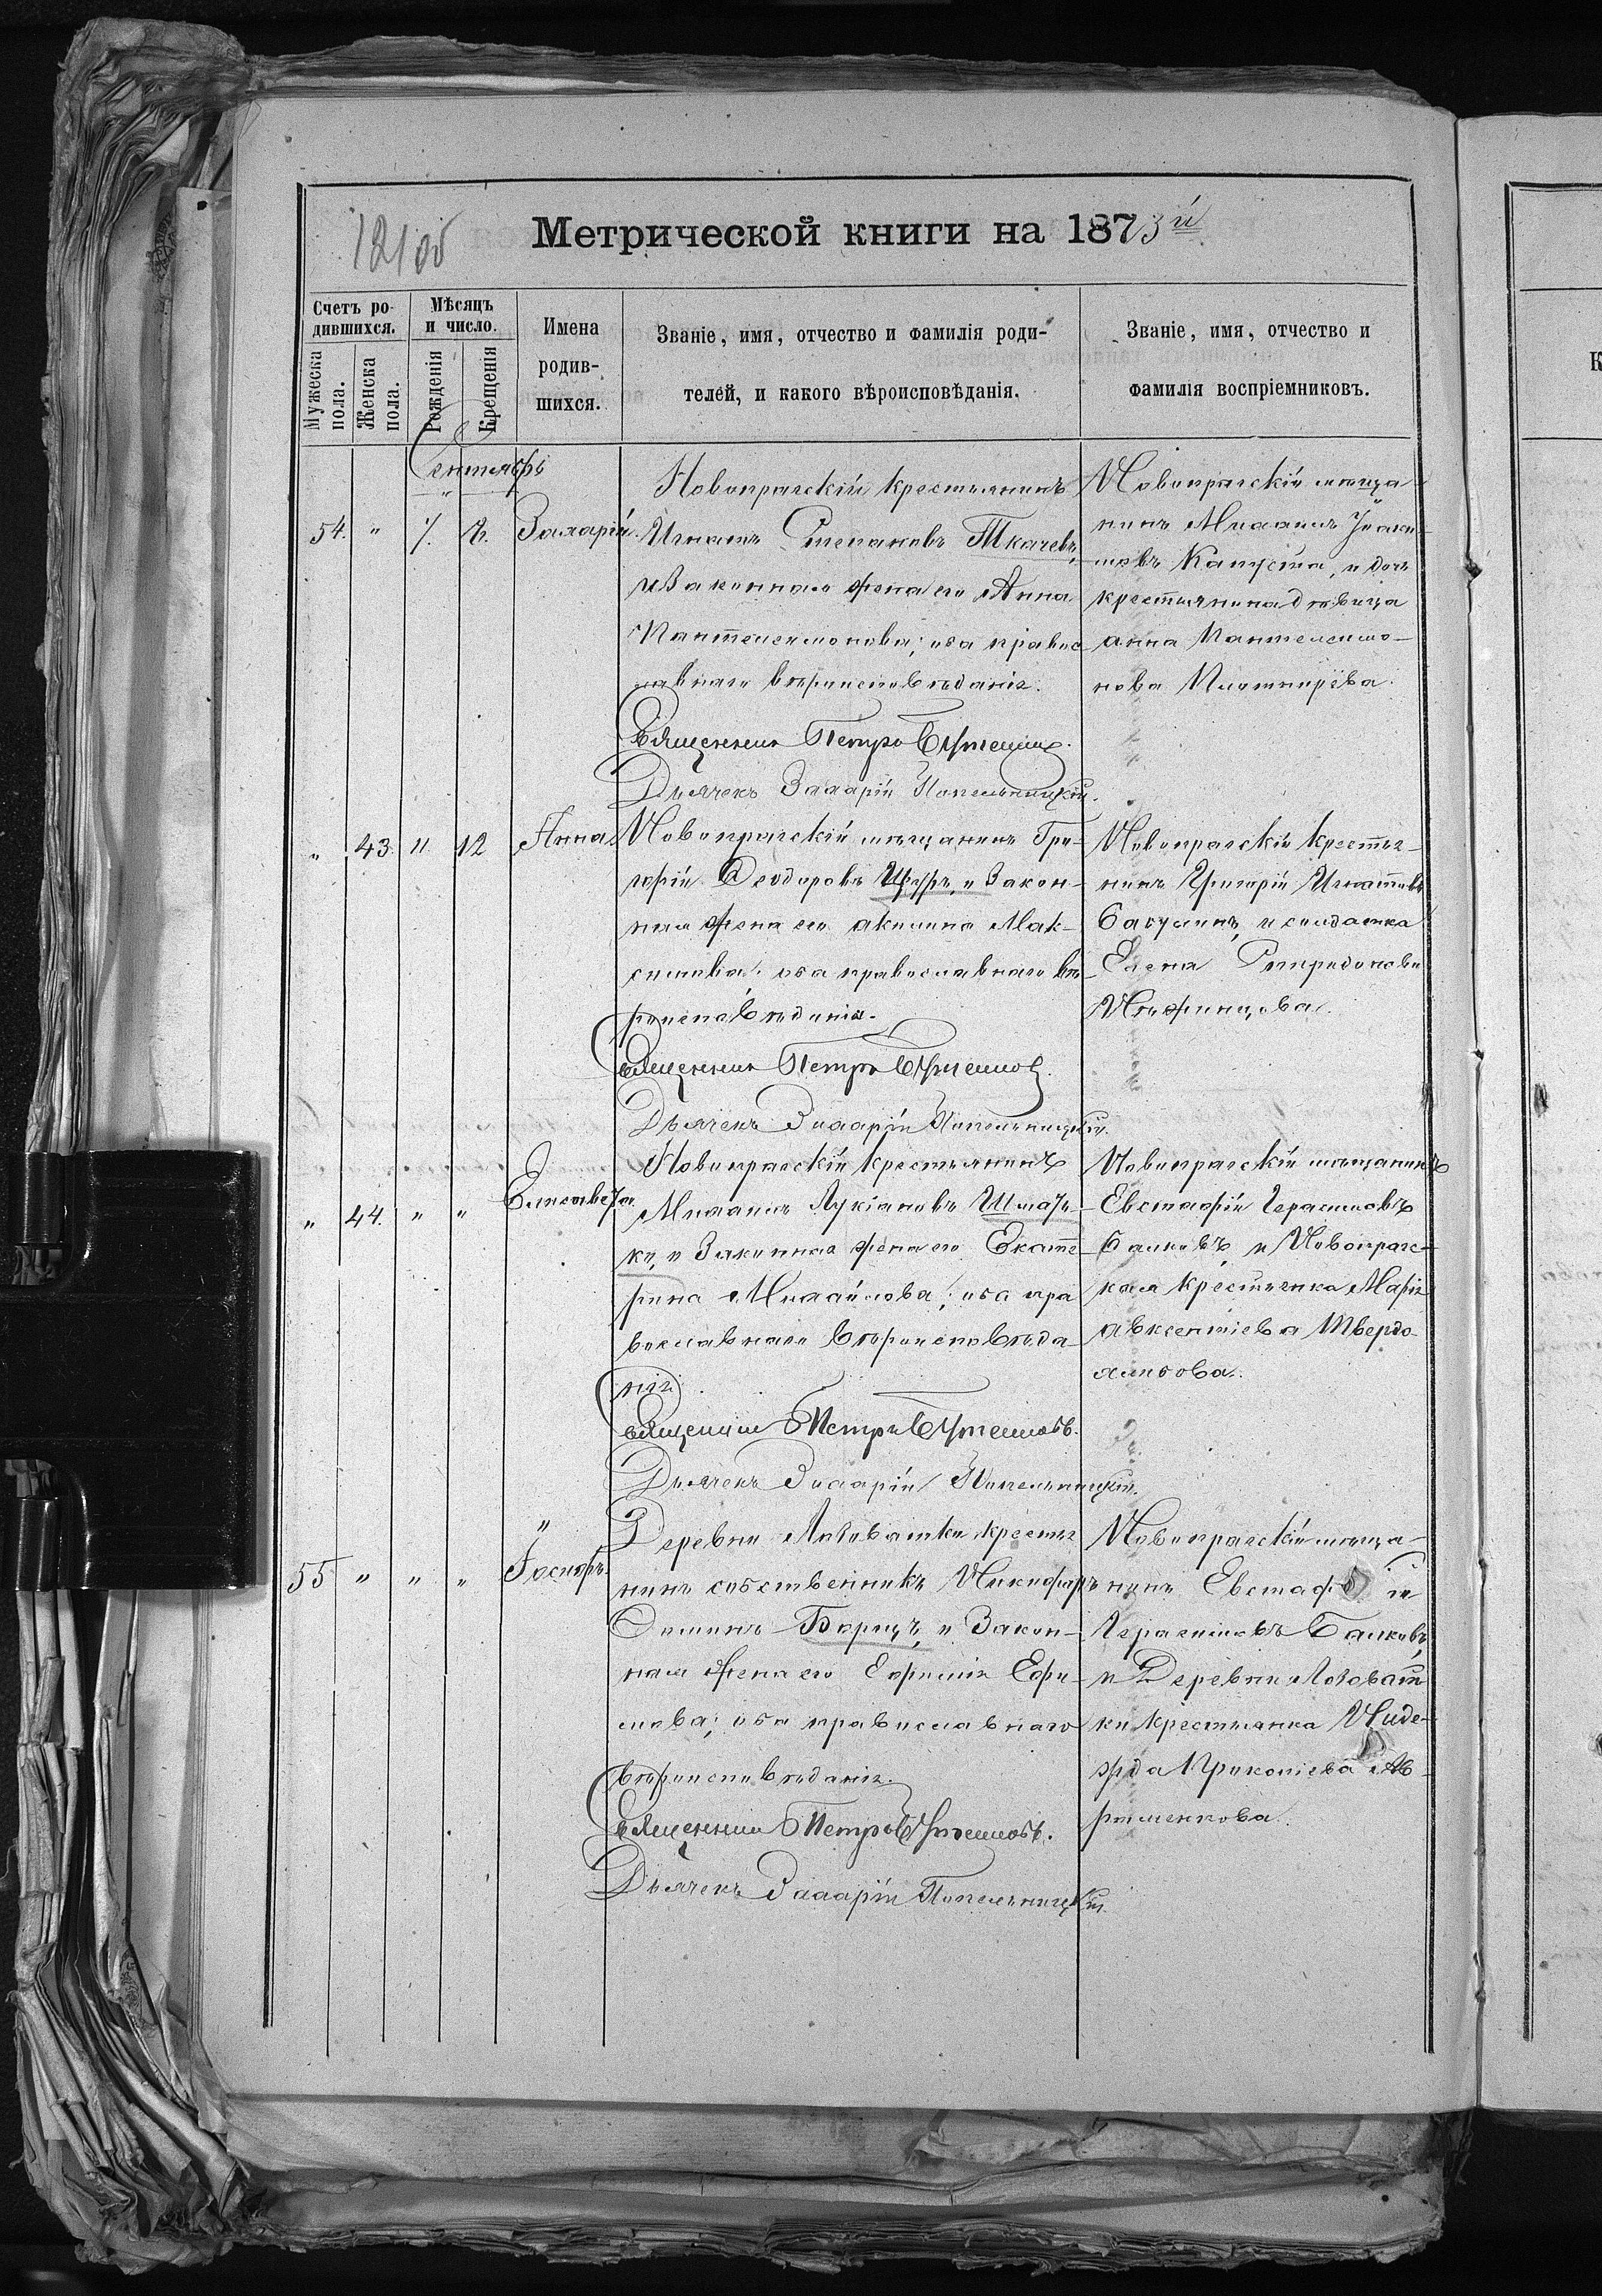 Метрической книги на 1873й
Счетъ ро-
дившихся.
Мужеска
пола.
Женска
пола.
Мѣсяцъ
и число.
Рожденія
Крещенія
Имена
родив-
шихся.
Званіе, имя, отчество и фамилія роди-
телей, и какого вѣроисповѣданія.
Званіе, имя, отчество и
фамилія воспріемниковъ.
Сентябрь
54. " 7. Захарій.
Новопражскій крестьянинъ
Игнатъ Степановъ Ткачевъ,
и Законная жена его Анна
Пантелеимонова; оба правос
лавнаго вѣроисповѣданія.
Священникъ Петръ
Дьячекъ Захарій Попельницкій.
Новопражскій мѣща
нинъ Михаилъ Іоаки
мовъ Капуста, и дочь
крестьянина дѣвица
анна Пантелеимо-
нова
" 43. 11 12 Анна
Новопражскій мѣщанинъ Гри-
горій Феодоровъ Щуръ, и Закон-
ная жена его акилина Мак-
симова; оба православнаго вѣ
роисповѣданія.
Священникъ Петръ
Дьячекъ Захарій Попельницкій.
Новопражскій крестья-
нинъ Григорій Игнатовъ
и солдатка
Елена Спиридонова
" 44. " " Елисавета
Новопражскій крестьянинъ
Михаилъ Лукіановъ Шмать-
ко, и Законная жена его Екате
рина Михайлова; оба пра
вославнаго вѣроисповѣда
нія.
Священникъ Петръ
Дьячекъ Захарій Попельницкій.
Новопражскій мѣщанинъ
Евстафій Герасимовъ
Балковъ и Новопраж-
ская крестьянка Марія
авксентіева Твердо-
хлѣбова.
55 " " "
Деревни Лозоватки крестья
нинъ собственникъ Никифоръ
Борщъ, и Закон-
ная жена его Евфимія Ефи
мова; оба православнаго
вѣроисповѣданія.
Священникъ Петръ
Дьячекъ Захарій Попельницкій.
Новопражскій мѣща-
нинъ Евстафій
Герасимовъ Балковъ,
и Деревни Лозоват
ки крестьянка
Прокопіева Ав
раменкова.